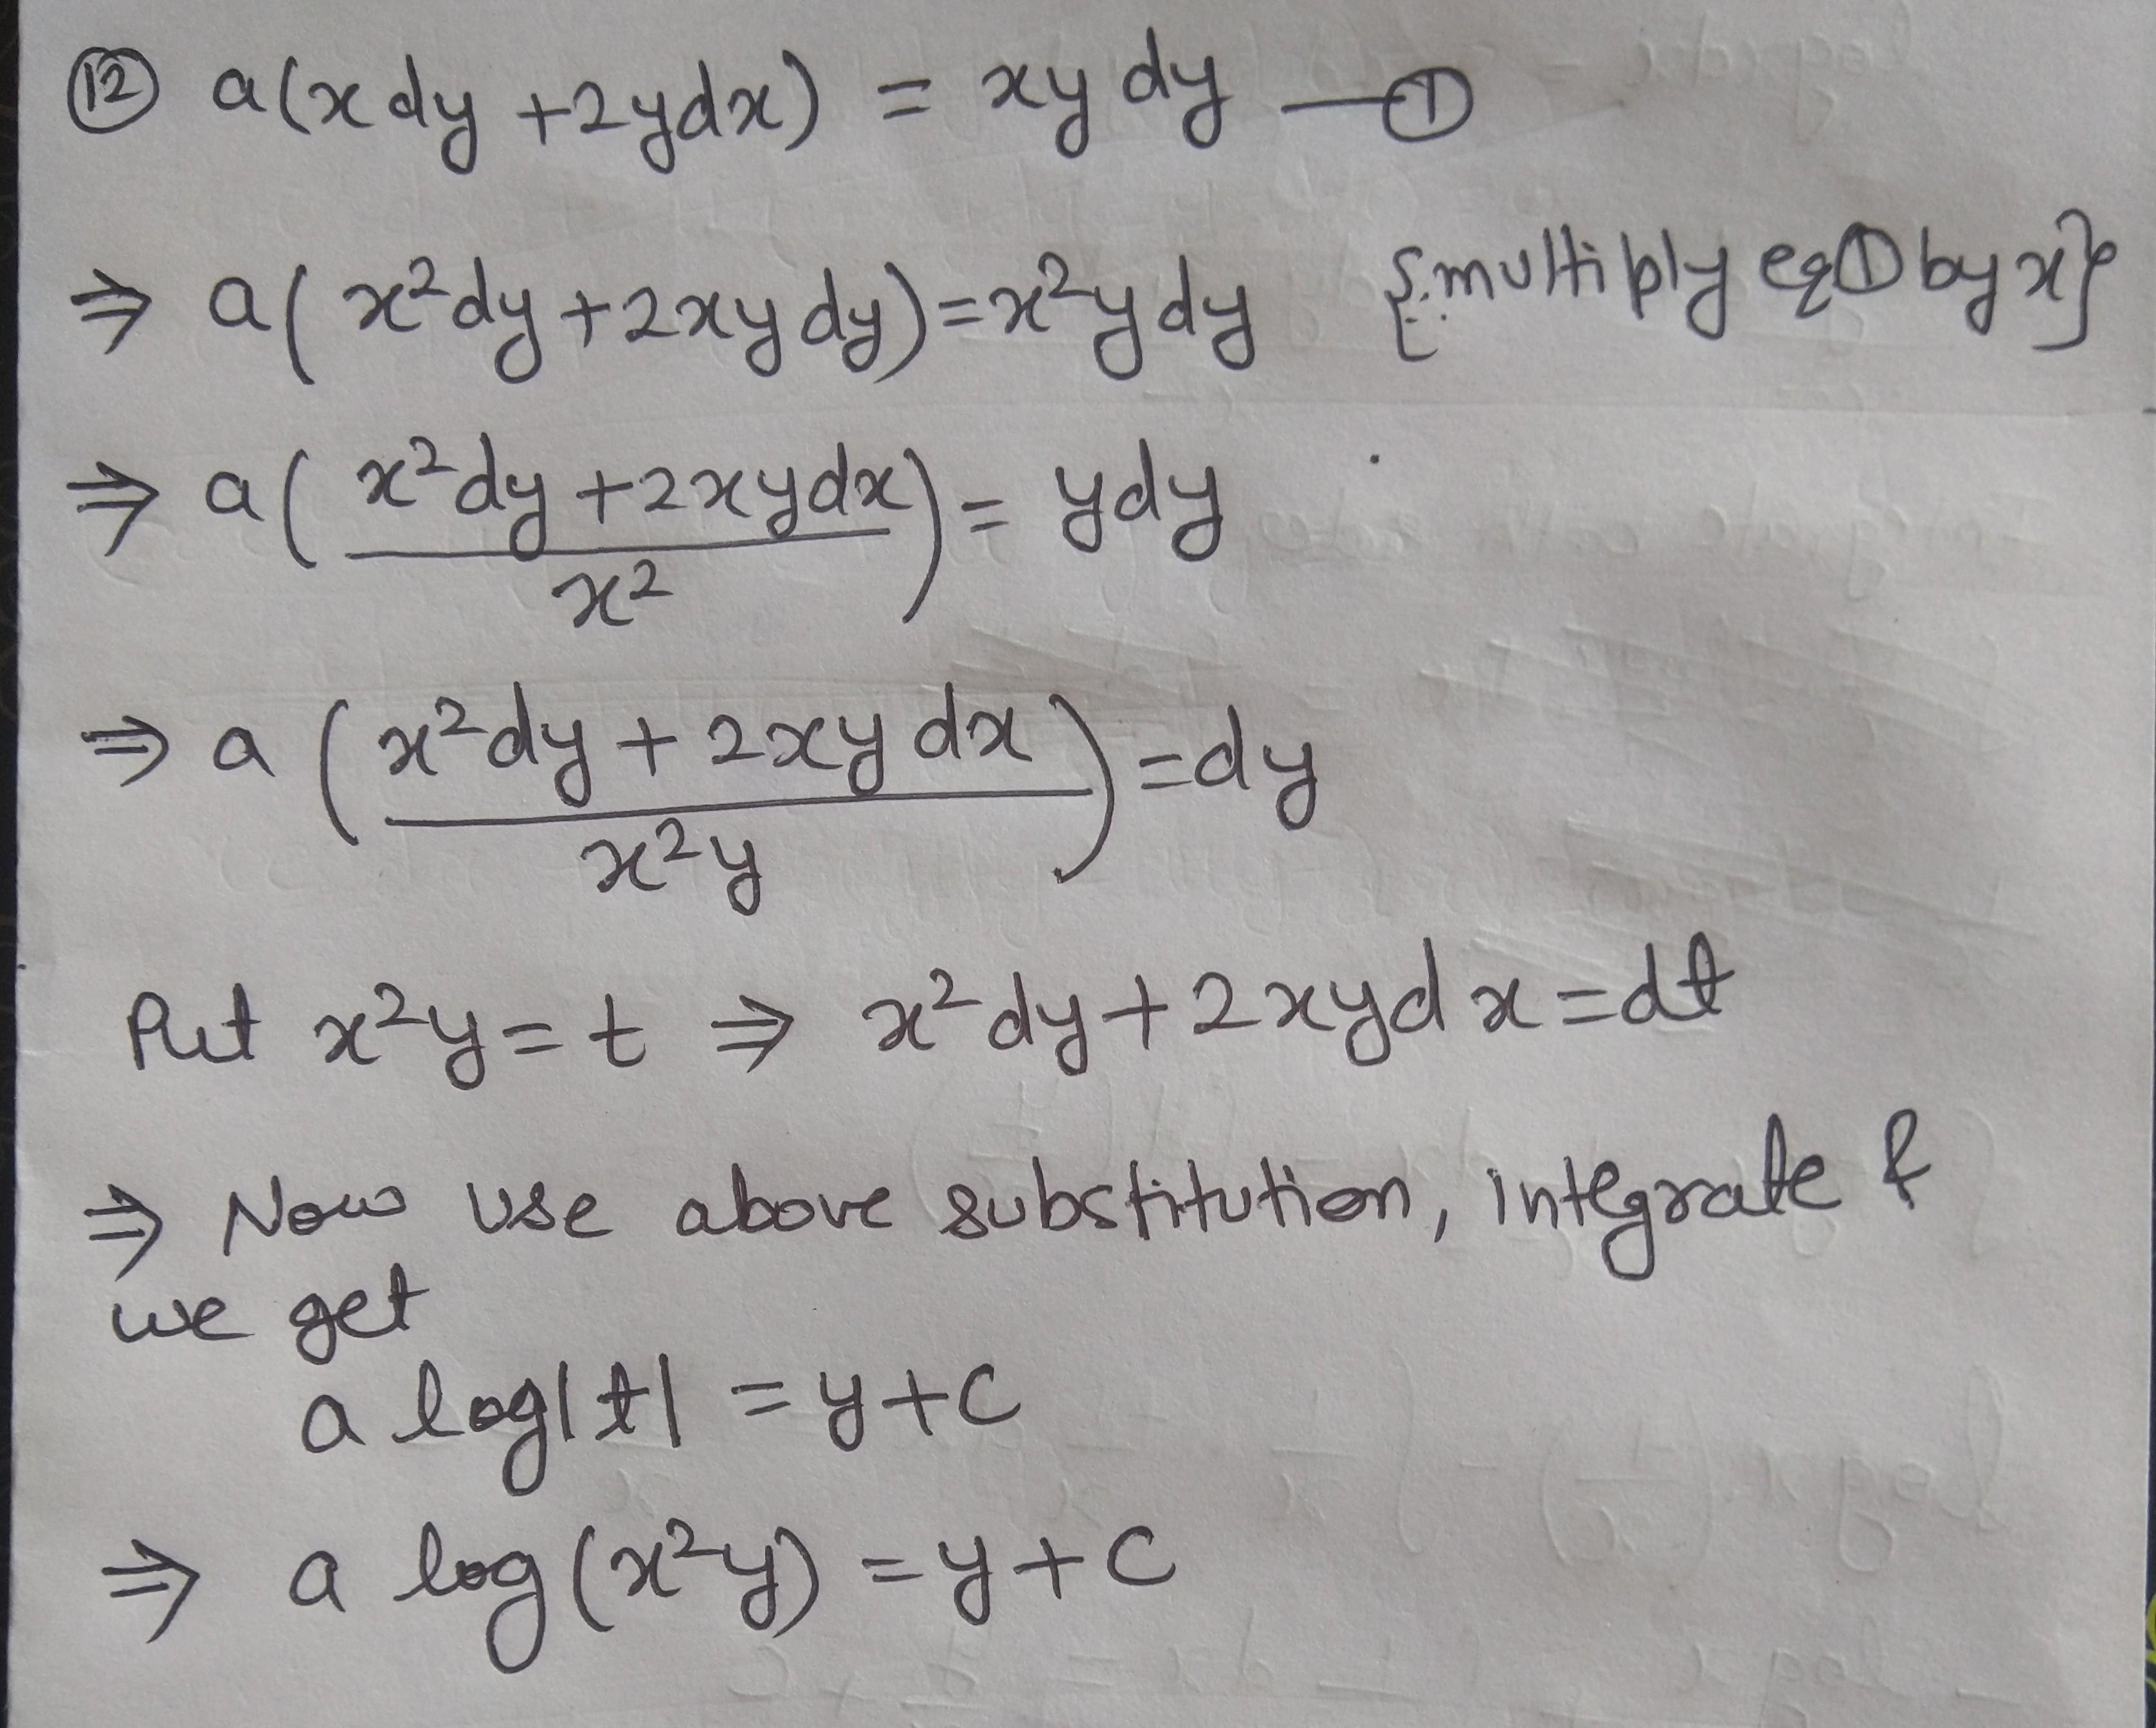 ⑫ a(x dy + 2y dx) = xy dy —①
⇒ a(x²dy + 2xy dy) = x²y dy {multiply eq ① by x}
⇒ a((x²dy + 2xydx)/x²) = ydy
⇒ a((x²dy + 2xy dx)/(x²y)) = dy
Put x²y = t ⇒ x²dy + 2xydx = dt
⇒ Now use above substitution, integrate &
we get
a log|t| = y + c
⇒ a log(x²y) = y + c